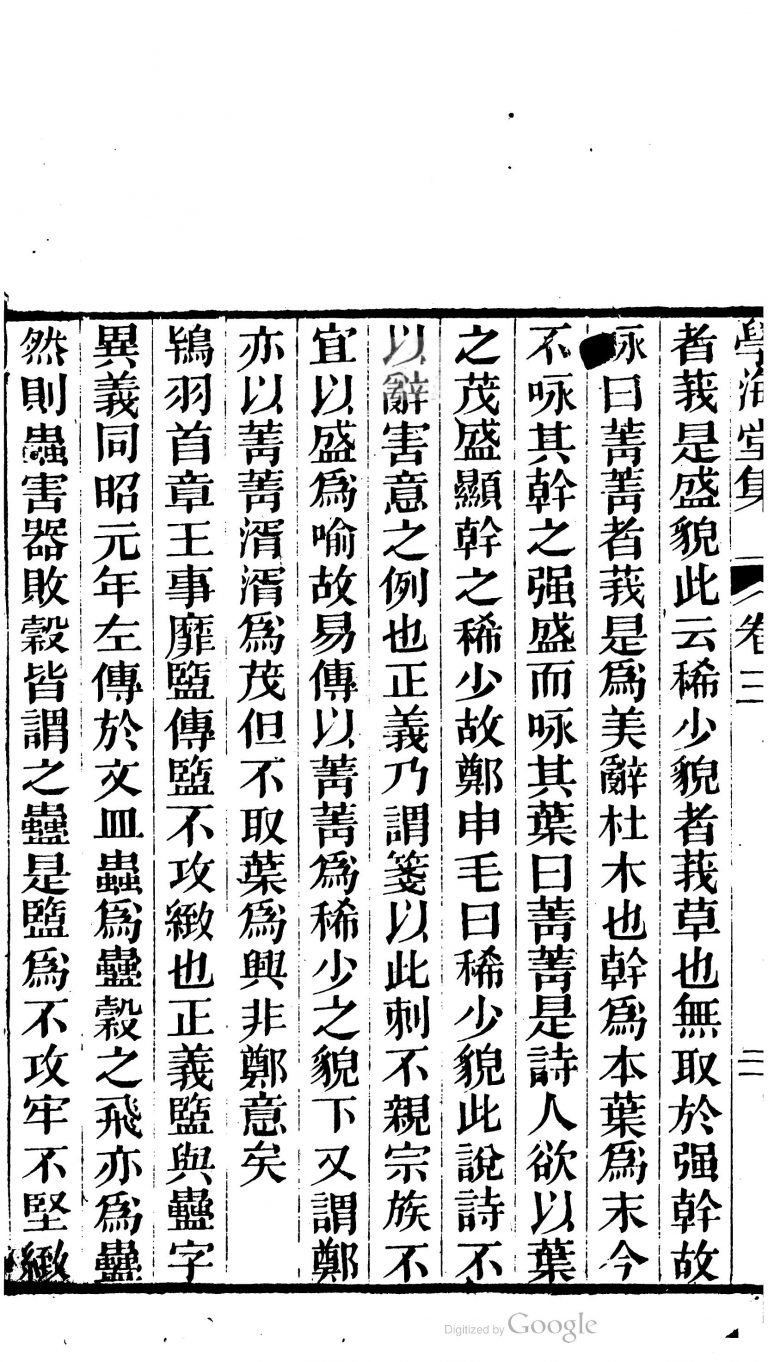 學海堂集 卷三 二
者莪是盛貌此云稀少貌者莪草也無取於强幹故
咏曰菁菁者莪是爲美辭杜木也幹爲本葉爲末今
不咏其幹之强盛而咏其葉曰菁菁是詩人欲以葉
之茂盛顯幹之稀少故鄭申毛曰稀少貌此說詩不
以辭害意之例也正義乃謂箋以此刺不親宗族不
宜以盛爲喻故易傳以菁菁爲稀少之貌下又謂鄭
亦以菁菁湑湑爲茂但不取葉爲興非鄭意矣
鴇羽首章王事靡盬傳盬不攻緻也正義盬與蠱字
異義同昭元年左傳於文皿蟲爲蠱穀之飛亦爲蠱
然則蟲害器敗穀皆謂之蠱是盬爲不攻牢不堅緻
Digitized by Google